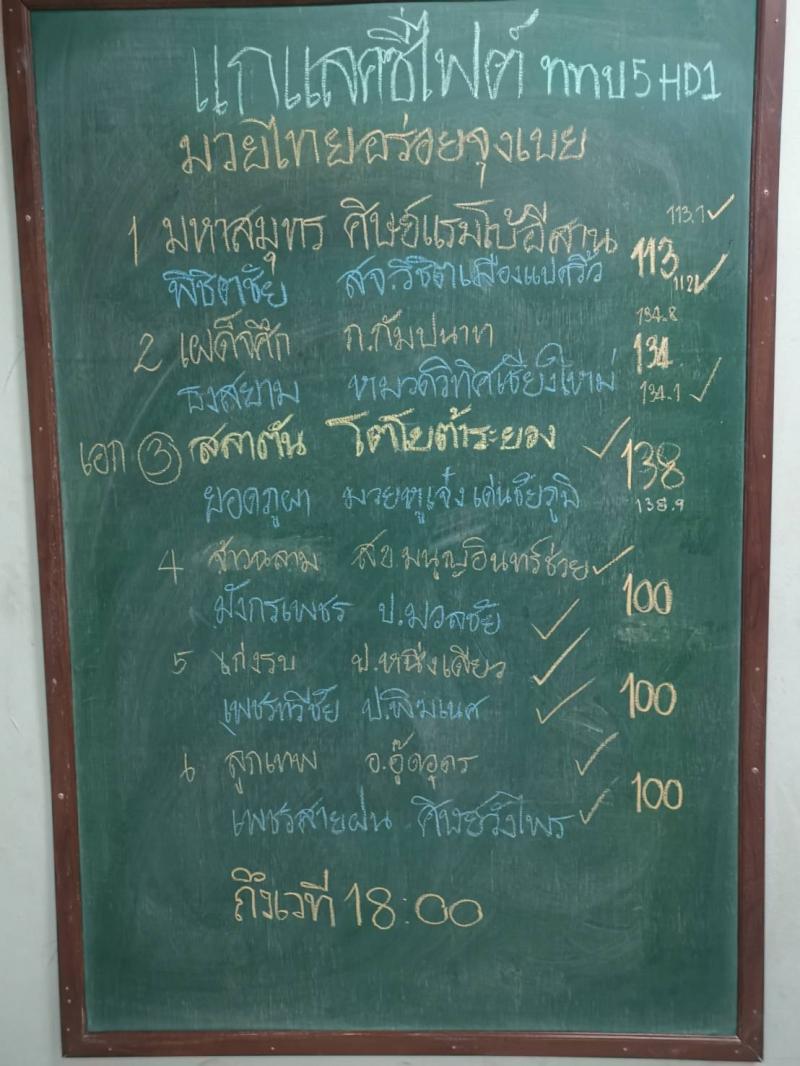 แกแลคซี่ไฟต์ ททบ5HD1
มวยไทยอร่อยจุงเบย
1 มหาสมุทร ศิษย์แรมโบ้อีสาน 113.1 ✓
113
พิชิตชัย สจ.วิชิตเมืองแปดริ้ว 112 ✓
134.8
2 เผด็จศึก ก.กัมปนาท 134
ธงสยาม หมวดวิทิศเชียงใหม่ 134.1 ✓
เอก 3 สลาตัน โตโยต้าระยอง ✓ 138
ยอดภูผา มวยหูเจ๋งเด่นชัยภูมิ 138.9
4 จ้าวฉลาม สข.มนุญอินทร์ช่วย ✓
100
มังกรเพชร ป.มวลชัย ✓
5 เก่งรบ ป.หนึ่งเดียว ✓
100
เพชรทวีชัย ป.พิฆเนศ ✓
6 ลูกเทพ อ.อู๊ดอุดร ✓
100
เพชรสายฝน ศิษย์วังไพร ✓
ถึงเวที 18:00